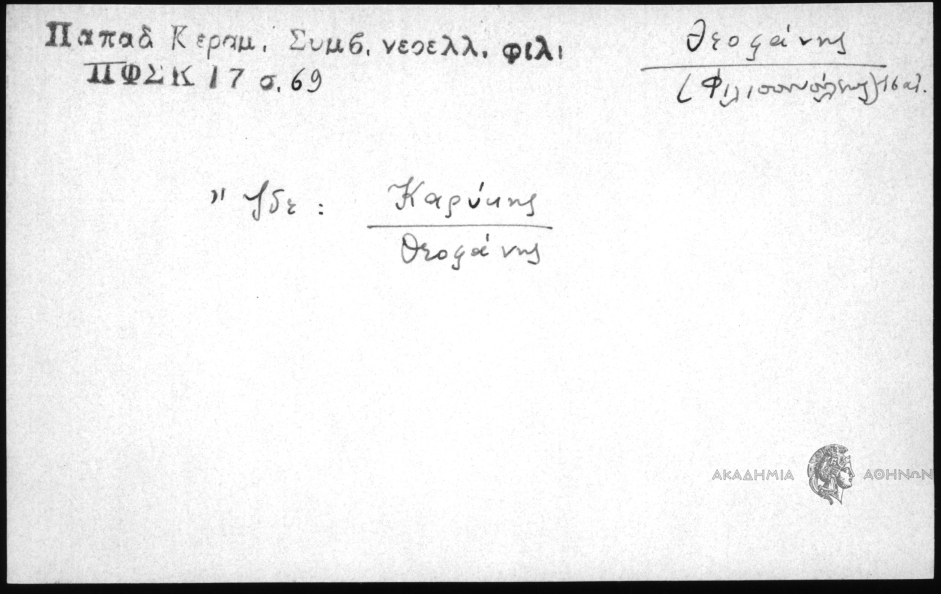 Παπαδ Κεραμ. Συμβ. νεοελλ. φιλ.
ΠΦΣΚ 17 σ. 69
Θεοφάνης
(Φιλιππουπόλεως) 16 αἰ.
" Ἴδε : Καρύκης
Θεοφάνης
ΑΚΑΔΗΜΙΑ ΑΘΗΝΩΝ